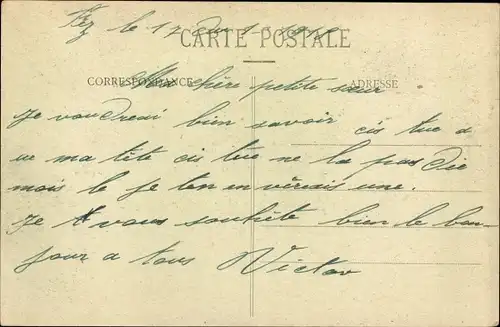 le 17
CARTE POSTALE
CORRESPONDANCE
ADRESSE
Ma chère petite sœur
Je voudrai bien savoir cis tue a
ue ma tête cis tue ne la pas
mais le je ten en vérais une.
Je vous souhète bien le bon
jour a tous Victor